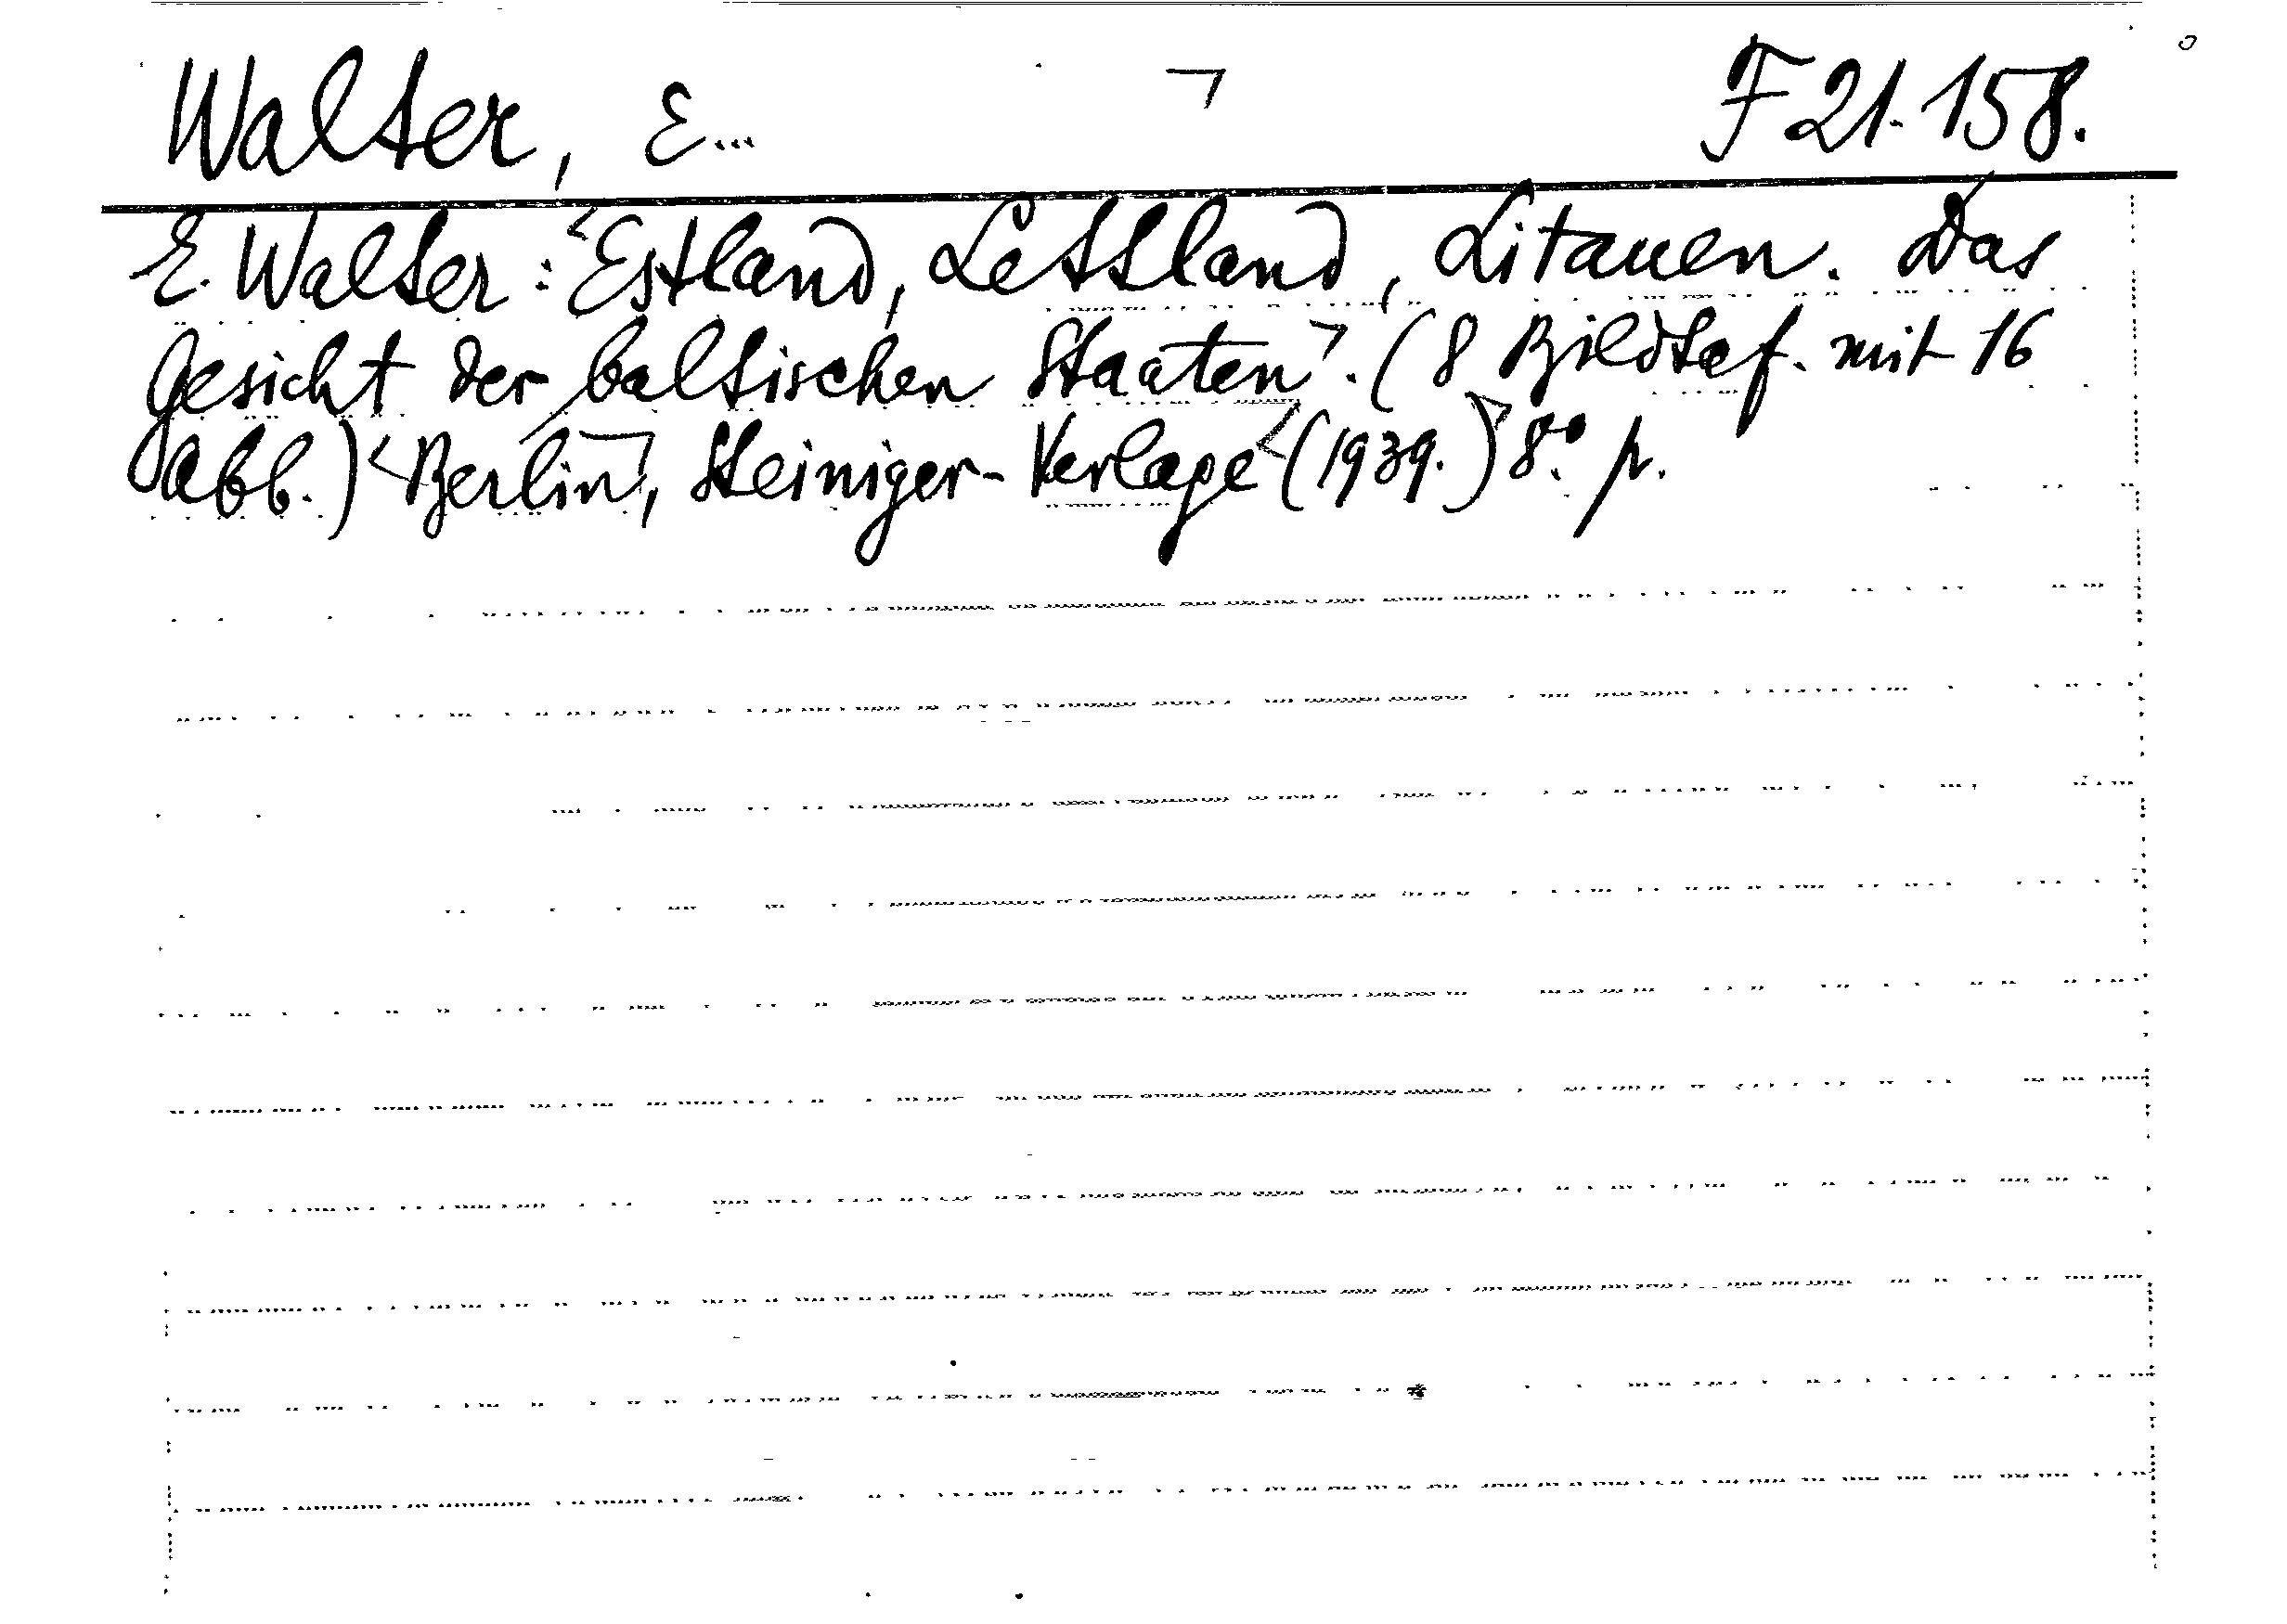 Walter, E... F 21.158.
E. Walter: Estland, Lettland, Litauen. Das
Gesicht der baltischen Staaten. (8 Bildtaf. mit 16
Abb.) Berlin, Steiniger-Verlage (1939.) 8°. p.